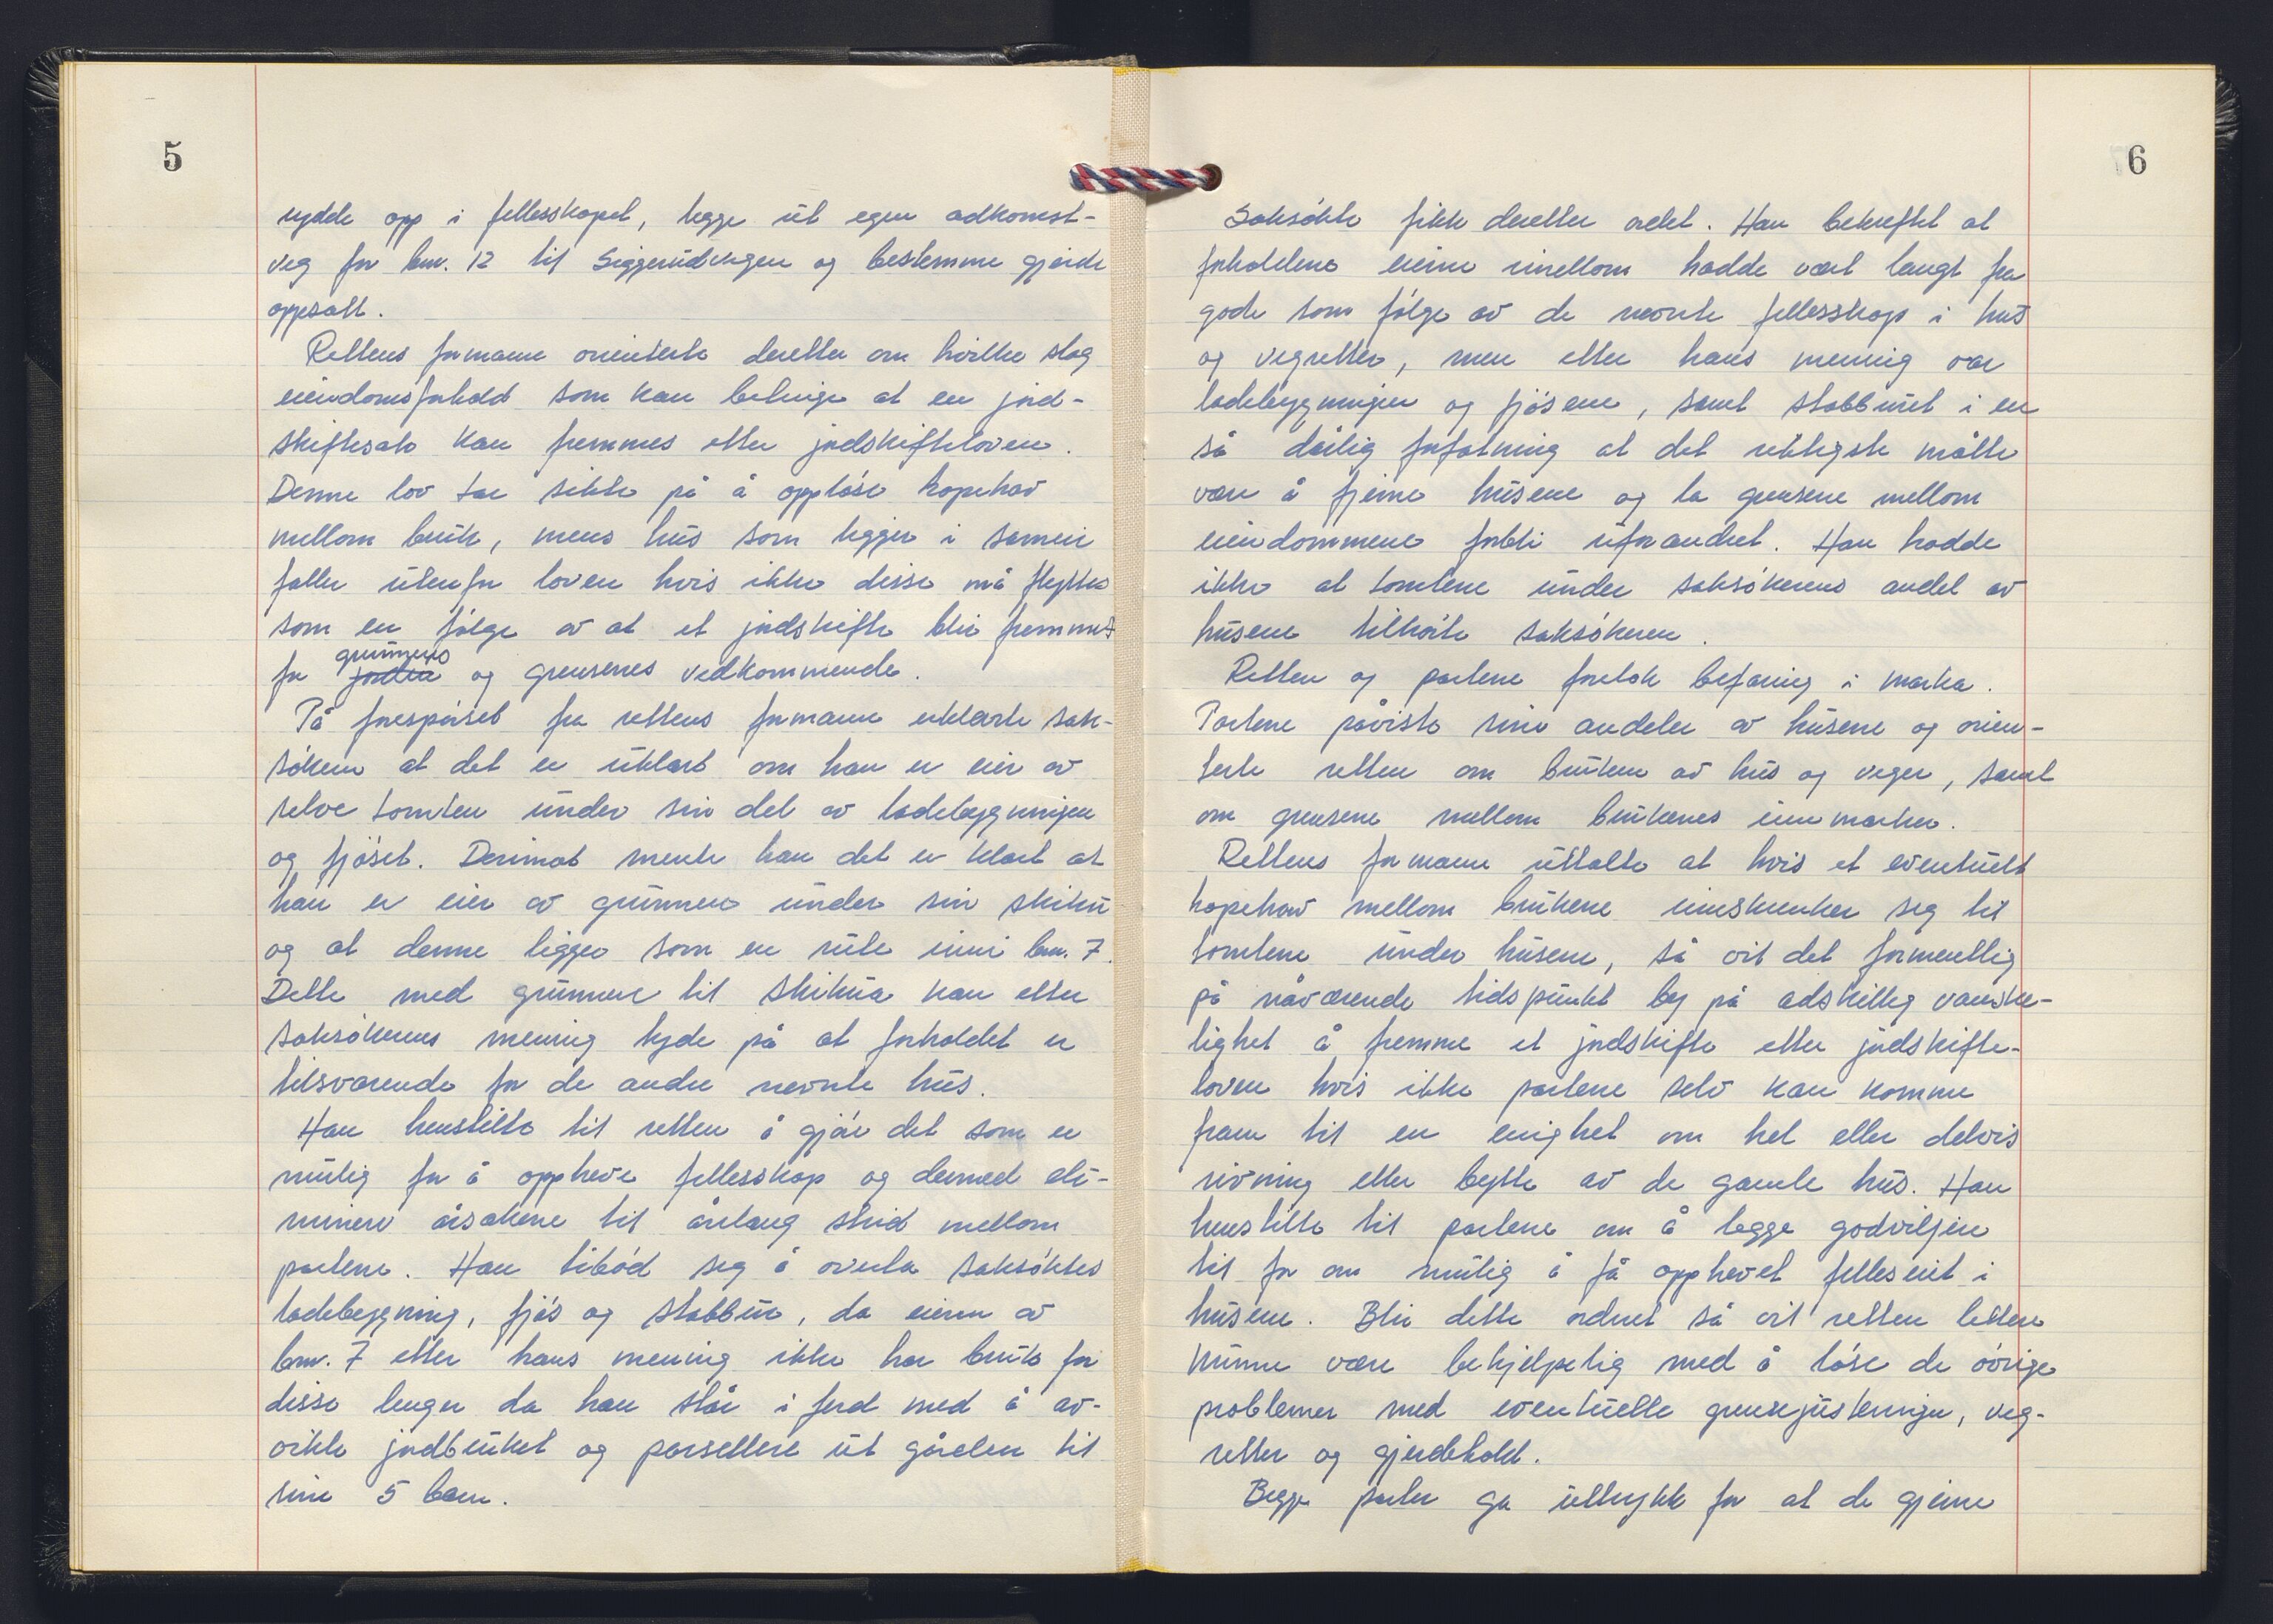 5
rydde opp i fellesskapet, legge ut egen adkomst-
veg for bnr. 12 til Siggerudvegen og bestemme gjerde
oppsatt.
Rettens formann orienterte deretter om hvilke slag
eiendomsforhold som kan betinge at en jord-
skiftesak kan fremmes etter jordskifteloven.
Denne lov tar sikte på å oppløse hopehav
mellom bruk, mens hus som ligger i sameie
faller utenfor loven hvis ikke disse må flyttes
som en følge av at et jordskifte blir fremmet
grunnens
for jorden og grensenes vedkommende.
På forespørsel fra rettens formann erklærte sak-
søkeren at det er uklart om han er eier av
selve tomten under sin del av ladebygningen
og fjøset. Derimot mente han det er klart at
han er eier av grunnen under sin skiku
og at denne ligger som en rute inni bnr. 7.
Dette med grunnen til skikua kan etter
saksøkerens mening tyde på at forholdet er
tilsvarende for de andre nevnte hus.
Han henstilte til retten å gjøre det som er
mulig for å oppheve fellesskap og dermed eli-
minere årsakene til årelang strid mellom
partene. Han tilbød seg å overta saksøktes
ladebygning, fjøs og stabbur, da eieren av
bnr. 7 etter hans mening ikke har bruk for
disse lenger da han står i ferd med å av-
vikle jordbruket og parsellere ut gården til
sine 5 barn.
6
Saksøkte fikk deretter ordet. Han bekreftet at
forholdene eierne imellom hadde vært langt fra
gode som følge av de nevnte fellesskap i hus
og vegretter, men etter hans mening var
ladebygningen og fjøsene, samt stabburet i en
så dårlig forfatning at det riktigste måtte
være å fjerne husene og la grensene mellom
eiendommene forbli uforandret. Han hadde
ikke at tomtene under saksøkerens andel av
husene tilhørte saksøkeren.
Retten og partene foretok befaring i marka.
Partene påviste sine andeler av husene og orien-
terte retten om bruken av hus og veger, samt
om grensene mellom brukenes innmarker.
Rettens formann uttalte at hvis et eventuelt
hopehav mellom brukene innskrenker seg til
tomtene under husene, så vil det formentlig
på nåværende tidspunkt by på adskillig vanske-
lighet å fremme et jordskifte etter jordskifte-
loven hvis ikke partene selv kan komme
fram til en enighet om hel eller delvis
rivning eller bytte av de gamle hus. Han
henstilte til partene om å legge godviljen
til for om mulig å få opphevet felleseiet i
husene. Blir dette ordnet så vil retten lettere
kunne være behjelpelig med å løse de øvrige
problemer med eventuelle grensejusteringer, veg-
retter og gjerdehold.
Begge parter ga uttrykk for at de gjerne